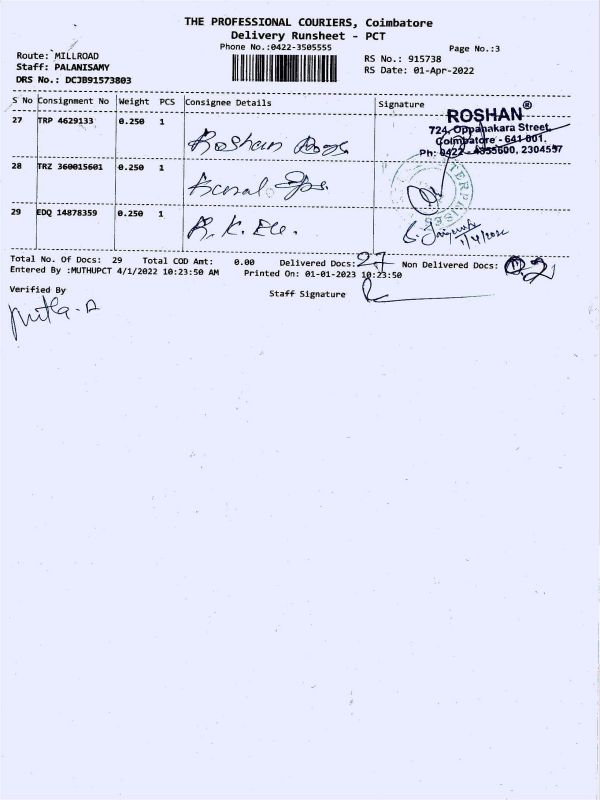 THE PROFESSIONAL COURIERS, Coimbatore
Delivery Runsheet - PCT
Phone No.:0422-3505555
Page No.:3
Route: MILLROAD
RS No.: 915738
Staff: PALANISAMY
RS Date: 01-Apr-2022
DRS No.: DCJB91573803
S No Consignment No Weight PCS Consignee Details Signature
ROSHAN®
724, Oppanakara Street,
Coimbatore - 641 001.
Ph: 0422 - 4355600, 2304597
27 TRP 4629133 0.250 1 Roshan Bags
28 TRZ 360015601 0.250 1
ENTERPRISES
29 EDQ 14878359 0.250 1 R.K. Ele.
1/4/2022
Total No. Of Docs: 29 Total COD Amt: 0.00 Delivered Docs: 27 Non Delivered Docs: 02
Entered By :MUTHUPCT 4/1/2022 10:23:50 AM Printed On: 01-01-2023 10:23:50
Verified By
Staff Signature